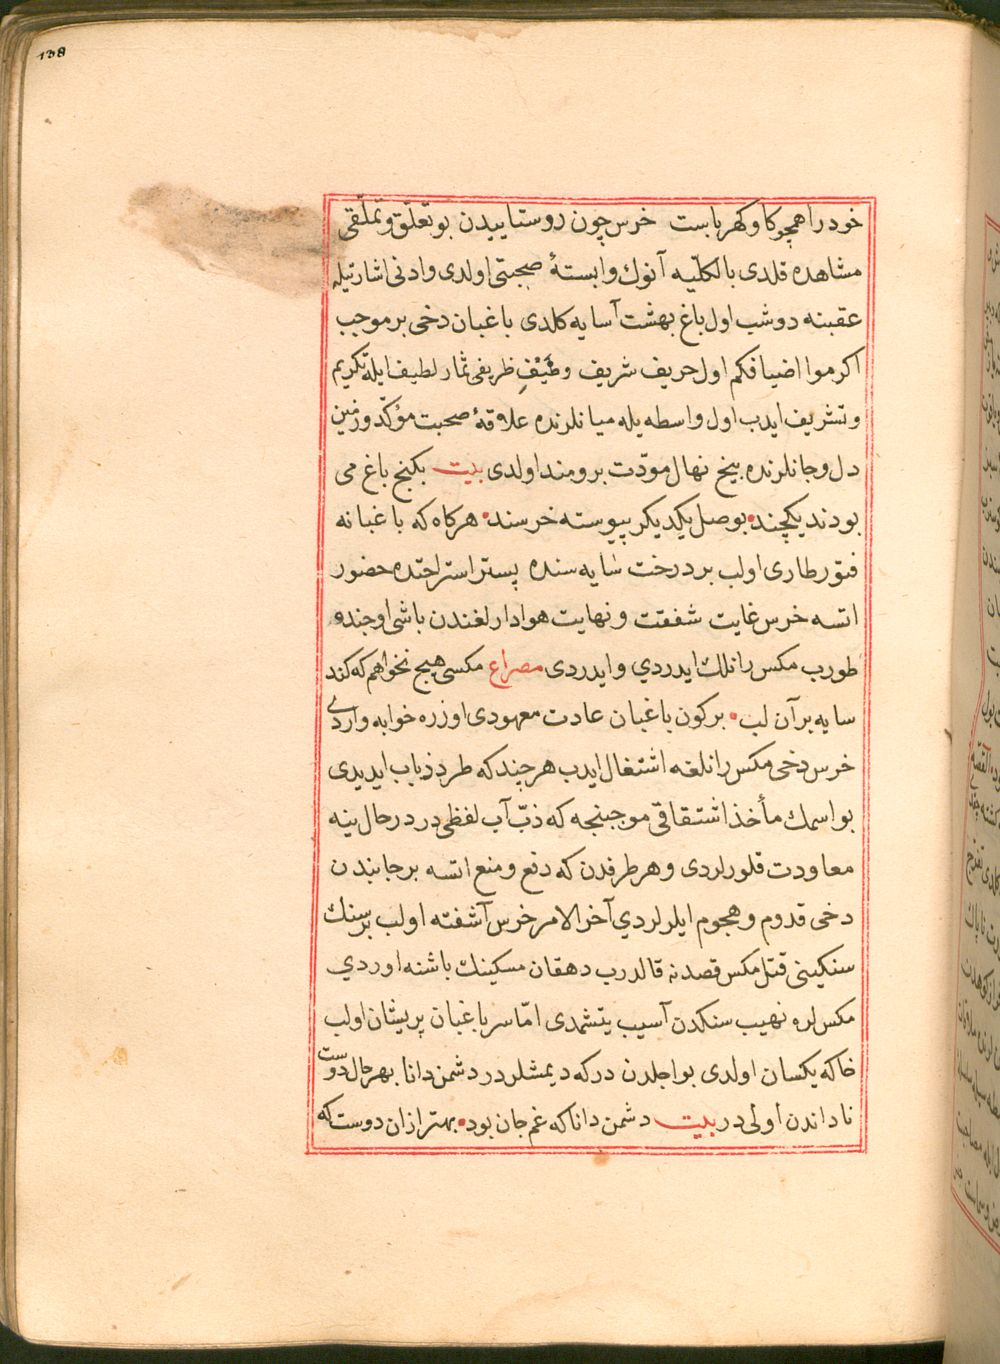 138
خود را همچو كاو كهرباست خرس چون روستاييدن بو تعلّق و تملّقى
مشاهده قلدى بالكلّيه آنوك وابستهٔ صحبتى اولدى وادنى اشارتيله
عقبنه دوشب اول باغ بهشت آسايه كلدى باغبان دخى بر موجب
اكرموا اضيافكم اول حريف شريف وضَيْفِ ظريفى ثمار لطيف ايله تكريم
وتشريف ايدب اول واسطه يله ميانلرنده علاقهٔ صحبت مؤكّد وزمين
دل وجانلرنده بيخ نهال مودّت برومند اولدى بيت بكنج باغ مى
بودند يكچند • بوصل يكديكر پيوسته خرسند • هركاه كه باغبانه
فتور طارى اولب بر درخت سايه سنده بستر استراحتده حضور
اتسه خرس غايت شفقت ونهايت هوادارلغندن باشى اوجنده
طورب مكس رانلك ايدردي وايدردى مصراع مكسى هيچ نخواهم كه كند
سايه بر آن لب • بر كون باغبان عادت معهودى اوزره خوابه واردى
خرس دخى مكس رانلغه اشتغال ايدب هر چند كه طرد ذباب ايديدى
بو اسمك مأخذ اشتقاقى موجبنجه كه ذبّ آب لفظى در در حال ينه
معاودت قلورلردى وهر طرفدن كه دفع ومنع اتسه بر جانبدن
دخى قدوم وهجوم ايلرلردي آخر الامر خرس آشفته اولب بر سنك
سنكينى قتل مكس قصدنه قالدرب دهقان مسكينك باشنه اوردي
مكسلره نهيب سنكدن آسيب يتشمدى امّا سر باغبان پريشان اولب
خاكه يكسان اولدى بو اجلدن دركه ديمشلردر دشمن دانا بهر حال دوست
ناداندن أولى در بيت دشمن دانا كه غم جان بود • بهتر ازان دوست كه